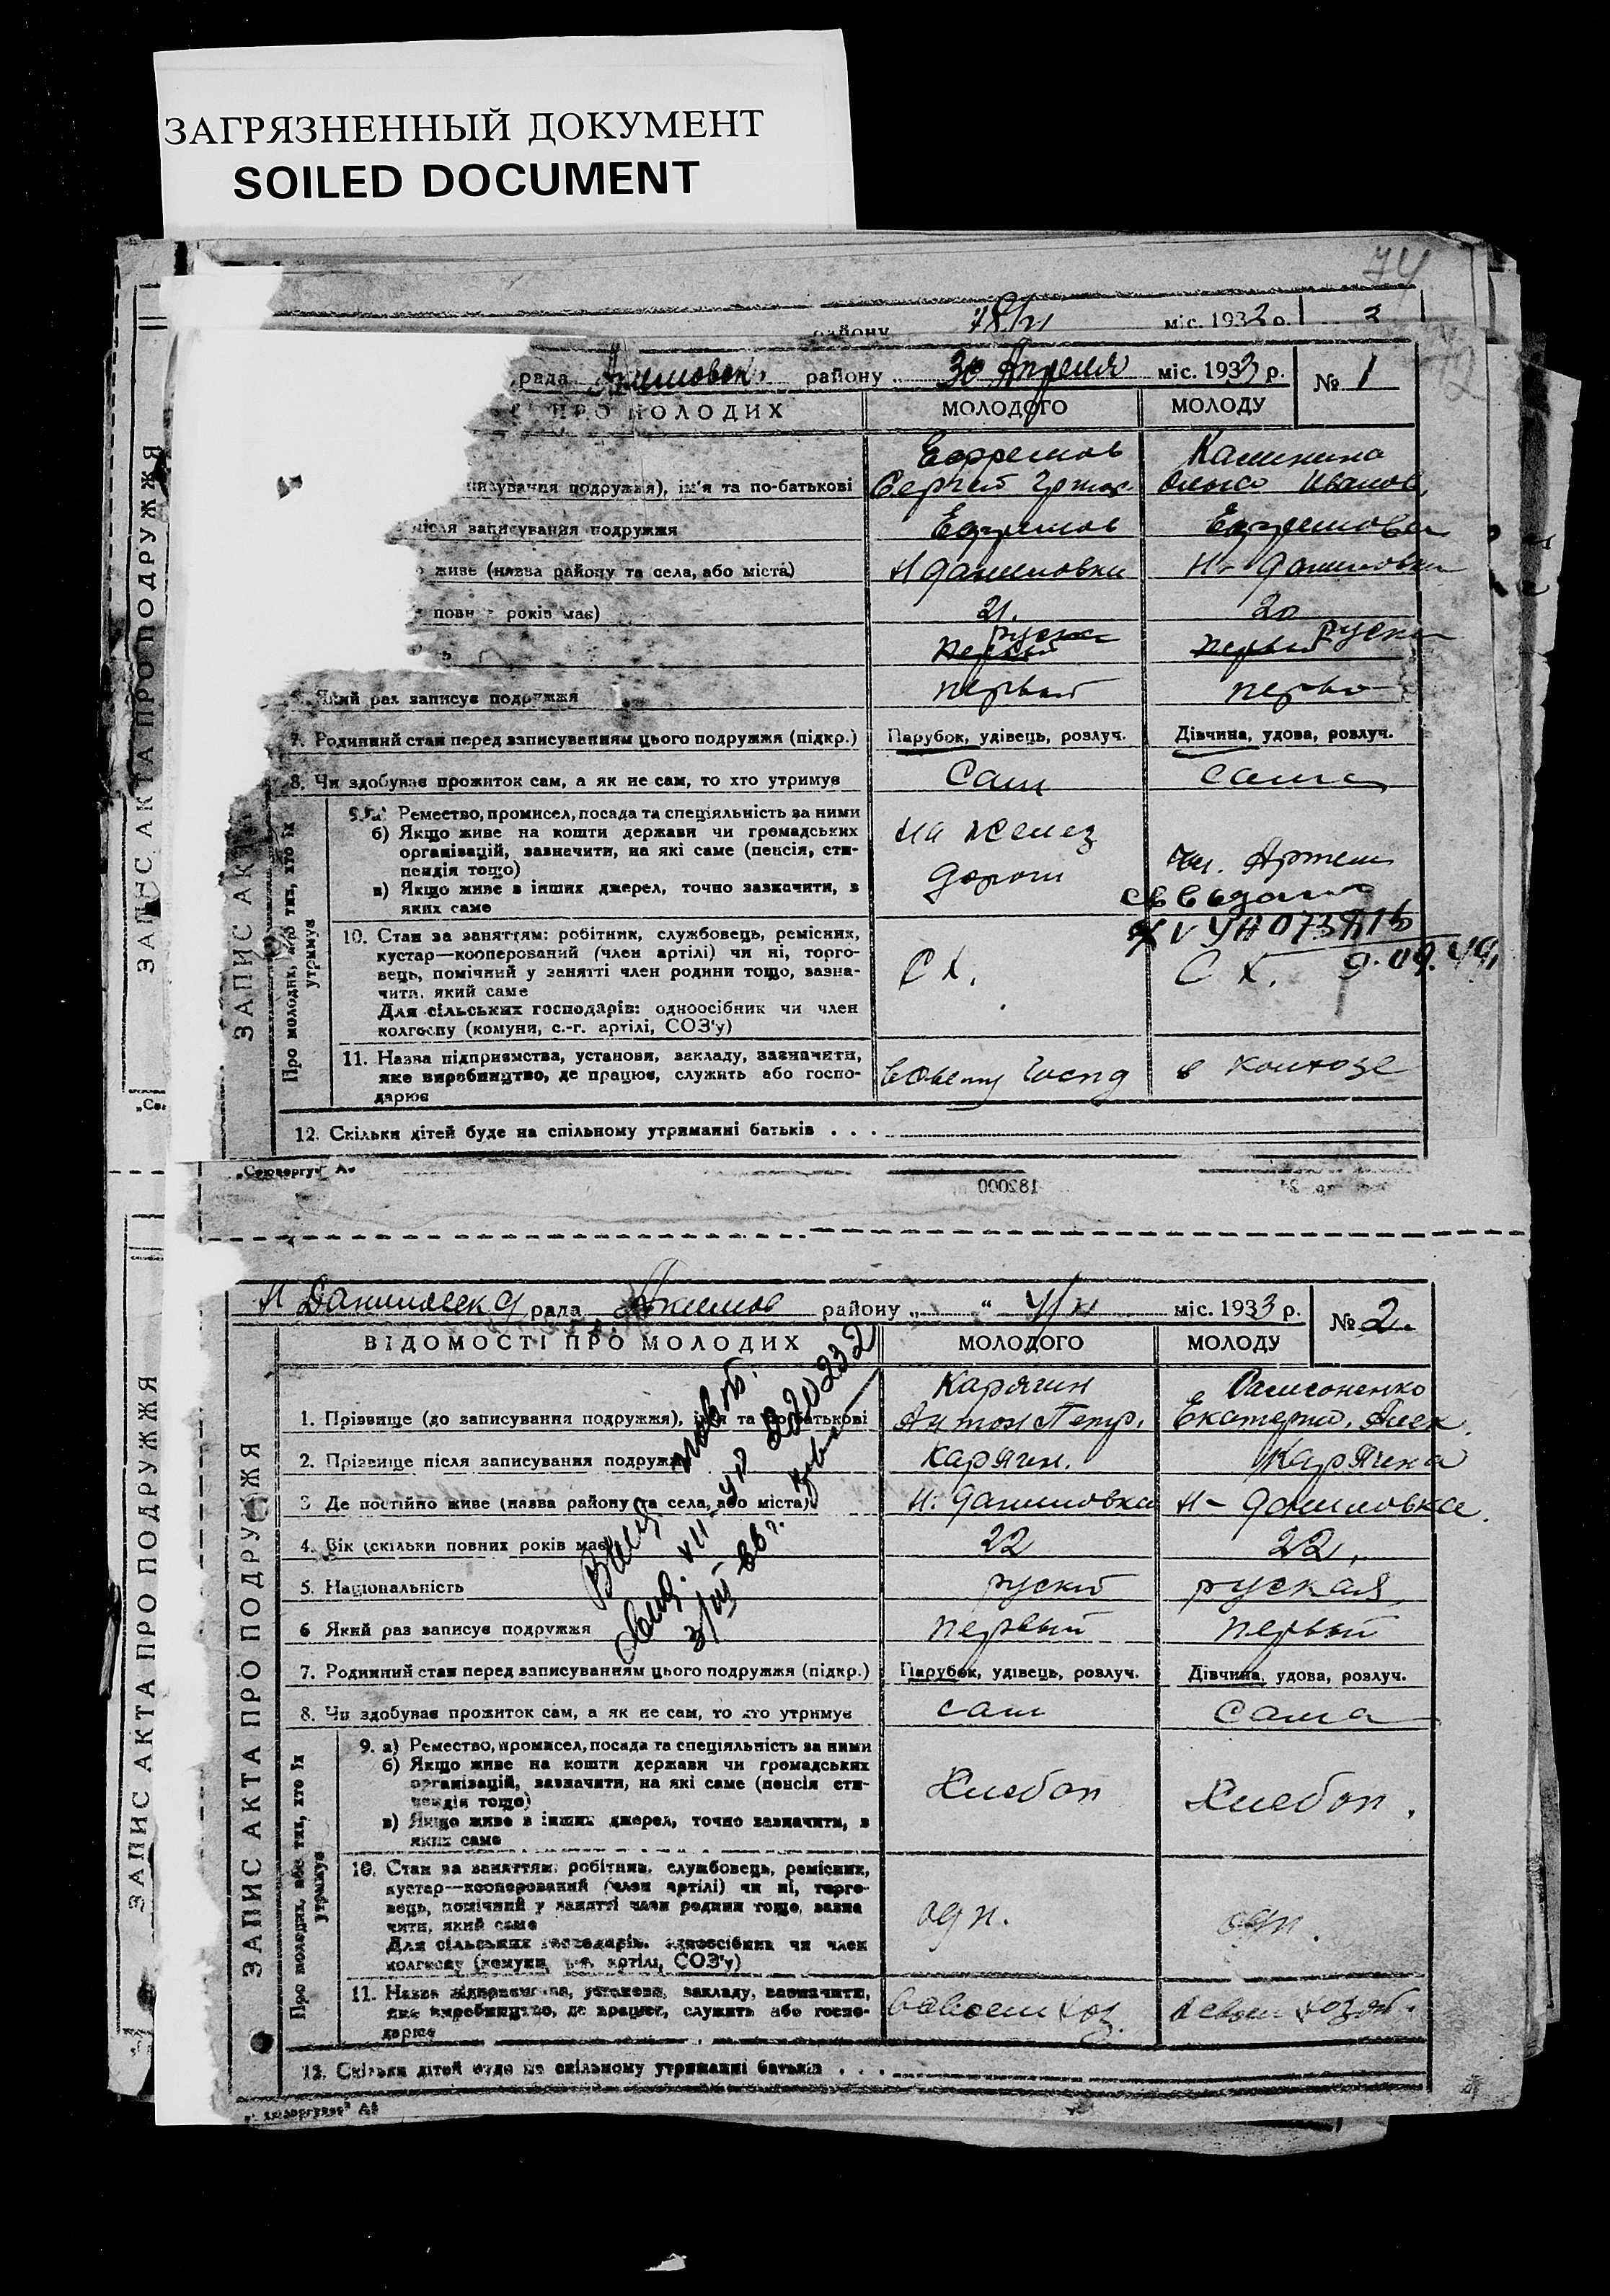 ЗАГРЯЗНЕННЫЙ ДОКУМЕНТ
SOILED DOCUMENT
74
району міс. 1932 р. 3
рада району „ 30 Апреля міс. 1933 р. № 1
ПРО МОЛОДИХ МОЛОДОГО МОЛОДУ
Ефремов Калинина
подружжя), ім'я та по-батькові Сергей Иванов.
після записування подружжя Ефремов Ефремова
живе (назва району та села, або міста) Н Даниловки Н- Даниловки
повних років має) 21. 20
первый руски первый руски
6. Який раз записує подружжя первый перво
7. Родинний стан перед записуванням цього подружжя (підкр.) Парубок, удівець, розлуч. Дівчина, удова, розлуч.
8. Чи здобуває прожиток сам, а як не сам, то хто утримує Сам сама
9. а) Ремество, промисел, посада та спеціяльність за ними
б) Якщо живе на кошти держави чи громадських
організацій, зазначити, на які саме (пенсія, сти-
пендія тощо)
в) Якщо живе з інших джерел, точно зазначити, з
яких саме
на желез
дороги
чл. Артели
10. Стан за заняттям: робітник, службовець, ремісник,
кустар—кооперований (член артілі) чи ні, торго-
вець, помічний у занятті член родини тощо, зазна-
чити, який саме
Для сільських господарів: одноосібник чи член
колгоспу (комуни, с.-г. артілі, СОЗ'у)
С Х. С Х. 9.09.49.
11. Назва підприємства, установи, закладу, зазначити,
яке виробництво, де працює, служить або госпо-
дарює
в колхозе
12. Скільки дітей буде на спільному утриманні батьків . . .
182000
Н Даниловск рада Акимов району „ “ міс. 1933 р. № 2.
ВІДОМОСТІ ПРО МОЛОДИХ МОЛОДОГО МОЛОДУ
Карягин
1. Прізвище (до записування подружжя), ім'я та по-батькові Антон Петр. Екатерин. Алек.
2. Прізвище після записування подружжя Карягин. Карягина
3 Де постійно живе (назва району та села, або міста) Н. Даниловка Н- Даниловка.
4. Вік (скільки повних років має) 22 22.
5. Національність руский руская
6 Який раз записує подружжя первый первый
7. Родинний стан перед записуванням цього подружжя (підкр.) Парубок, удівець, розлуч. Дівчина, удова, розлуч.
8. Чи здобуває прожиток сам, а як не сам, то хто утримує сам Сама
9. а) Ремество, промисел, посада та спеціяльність за ними
б) Якщо живе на кошти держави чи громадських
організацій, зазначити, на які саме (пенсія сти-
пендія тощо)
в) Якщо живе з інших джерел, точно зазначити, з
яких саме
Хлебоп Хлебоп.
10. Стан за заняттям: робітник, службовець, ремісник,
кустар—кооперований (член артілі) чи ні, торго-
вець, помічний у занятті член родини тощо, зазна
чити, який саме
Для сільських господарів. одноосібник чи член
колгоспу (комуни, с.-г. артілі, СОЗ'у)
одн. одн.
11. Назва підприємства, установи, закладу, зазначити,
яке виробництво, де працює, служить або госпо-
дарює
12. Скільки дітей буде на спільному утриманні батьків . . .
ЗАПИС АКТА ПРО ПОДРУЖЖЯ
Про молодих, або тих, хто їх
утримує
ЗАПИС АКТА ПРО ПОДРУЖЖЯ
ЗАПИС АКТА ПРО ПОДРУЖЖЯ